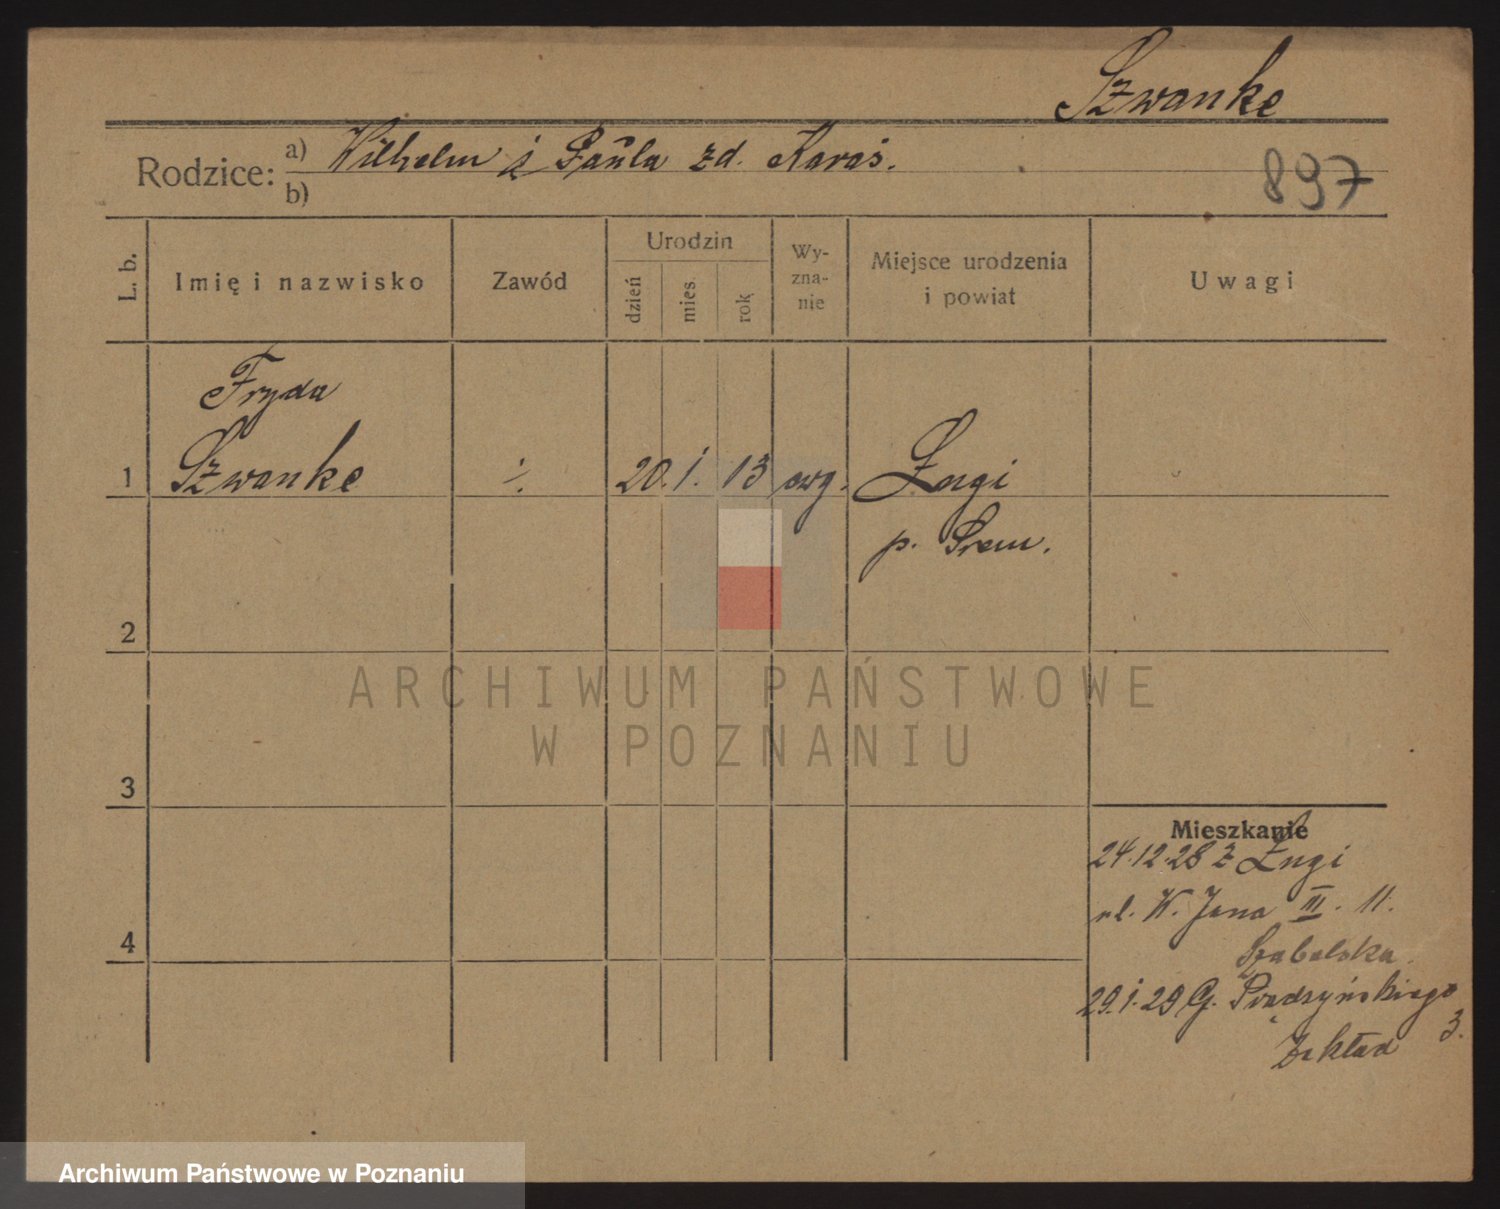 Szwanke
Rodzice: a) Wilhelm i Paula zd. Karaś.
b)
897
L. b.
Imię i nazwisko
Zawód
Urodzin
dzień
mies.
rok
Wy-
zna-
nie
Miejsce urodzenia
i powiat
Uwagi
Fryda
1 Szwanke ·/. 20. 1. 13 ewg.Ługi
p. Śrem.
2
ARCHIWUM PAŃSTWOWE
W POZNANIU
3
Mieszkanie
24.12.28 z Ługi
ul. K. Jana III. 11.
4
29.1.29 G. Prądzyńskiego
3.
Zakład
Archiwum Państwowe w Poznaniu